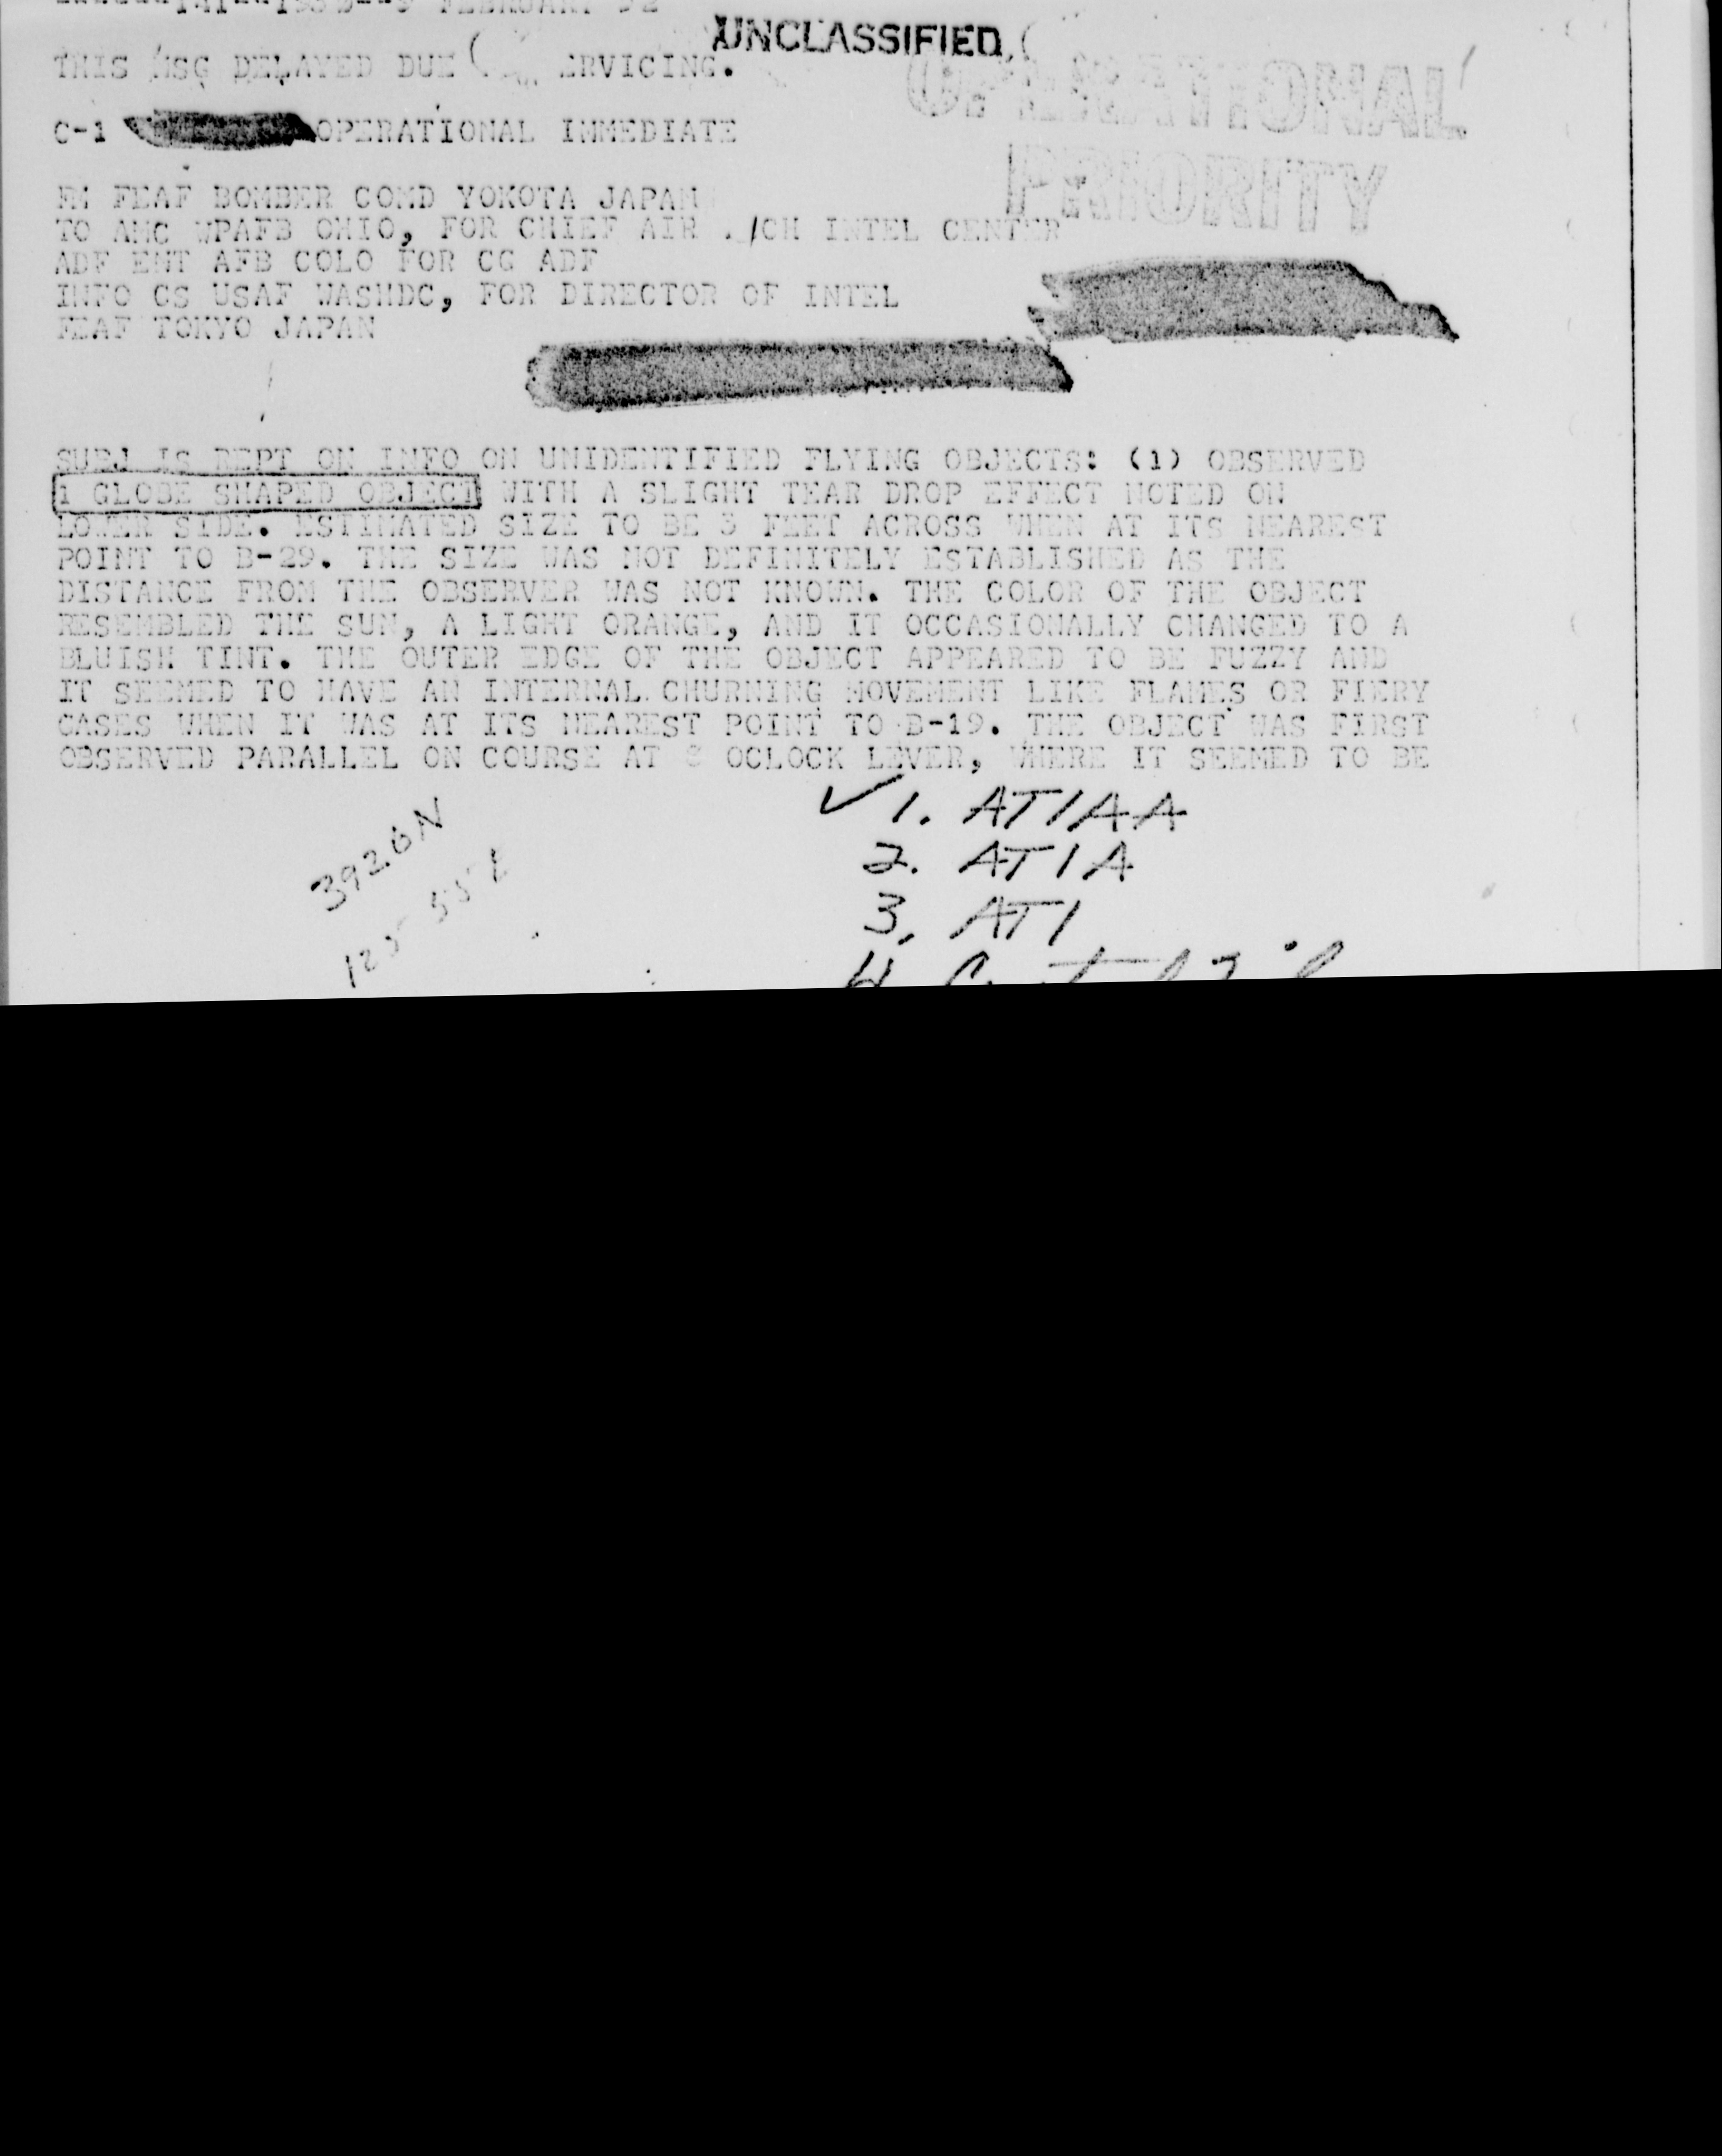 FEBRUARY 52
UNCLASSIFIED
THIS MSG DELAYED DUE SERVICING.
OPERATIONAL
PRIORITY
C-1 OPERATIONAL IMMEDIATE
FM FEAF BOMBER COMD YOKOTA JAPAN
TO AMC WPAFB OHIO, FOR CHIEF AIR INTEL CENTER
ADF ENT AFB COLO FOR CG ADF
INFO CS USAF WASHDC, FOR DIRECTOR OF INTEL
FEAF TOKYO JAPAN
SUBJ IS REPT ON INFO ON UNIDENTIFIED FLYING OBJECTS: (1) OBSERVED
1 GLOBE SHAPED OBJECT WITH A SLIGHT TEAR DROP EFFECT NOTED ON
LOWER SIDE. ESTIMATED SIZE TO BE 3 FEET ACROSS WHEN AT ITS NEAREST
POINT TO B-29. THE SIZE WAS NOT DEFINITELY ESTABLISHED AS THE
DISTANCE FROM THE OBSERVER WAS NOT KNOWN. THE COLOR OF THE OBJECT
RESEMBLED THE SUN, A LIGHT ORANGE, AND IT OCCASIONALLY CHANGED TO A
BLUISH TINT. THE OUTER EDGE OF THE OBJECT APPEARED TO BE FUZZY AND
IT SEEMED TO HAVE AN INTERNAL CHURNING MOVEMENT LIKE FLAMES OR FIERY
GASES WHEN IT WAS AT ITS NEAREST POINT TO B-19. THE OBJECT WAS FIRST
OBSERVED PARALLEL ON COURSE AT 8 OCLOCK LEVER, WHERE IT SEEMED TO BE
✓ 1. ATIAA
2. ATIA
3. ATI
3920N
125 55 E